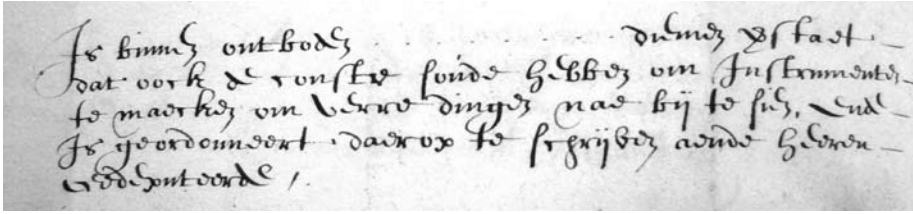 Is binnen ontboden . . . . . . . . . . diemen verstaet
dat oock de conste soude hebben om Instrumenten
te maecken om verre dingen nae bij te sien, ende
Is geordonneert daerop te schrijven aende heeren
Gedeputeerde /.